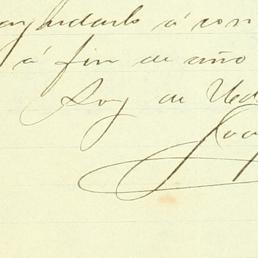 ayudarlo á con
á fin de año
Soy de Ud